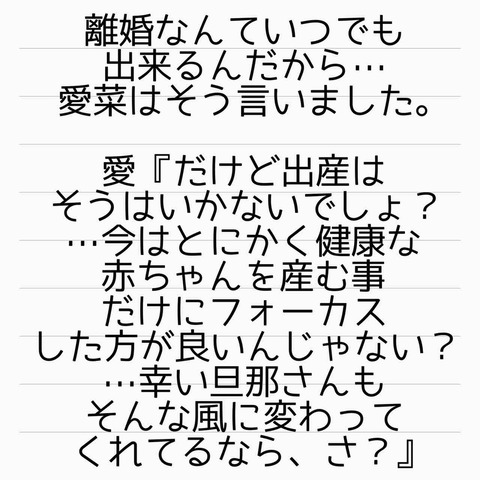 離婚なんていつでも
出来るんだから…
愛菜はそう言いました。
愛『だけど出産は
そうはいかないでしょ？
…今はとにかく健康な
赤ちゃんを産む事
だけにフォーカス
した方が良いんじゃない？
…幸い旦那さんも
そんな風に変わって
くれてるなら、さ？』